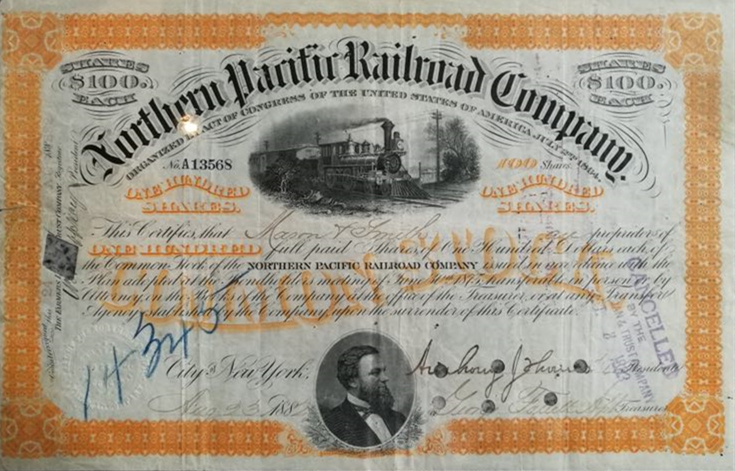 SHARES $100. EACH
SHARES $100. EACH
Northern Pacific Railroad Company.
ORGANIZED BY ACT OF CONGRESS OF THE UNITED STATES OF AMERICA, JULY 2ND 1864.
No. A13568
100 Shares
ONE HUNDRED SHARES.
ONE HUNDRED SHARES.
This Certifies that Mason & Smith are proprietors of
ONE HUNDRED full paid Shares, of One Hundred Dollars each, of
the Common Stock of the NORTHERN PACIFIC RAILROAD COMPANY issued in accordance with the
Plan adopted at the Bondholders meeting of June 30th 1875 Transferable in person or by
Attorney, on the Books of the Company at the office of the Treasurer, or at any Transfer
Agency established by the Company upon the surrender of this Certificate.
COMMON STOCK
14345
CANCELLED
BY THE
& TRUST COMPANY
City of New York,
Aug 23 188
President
Treasurer